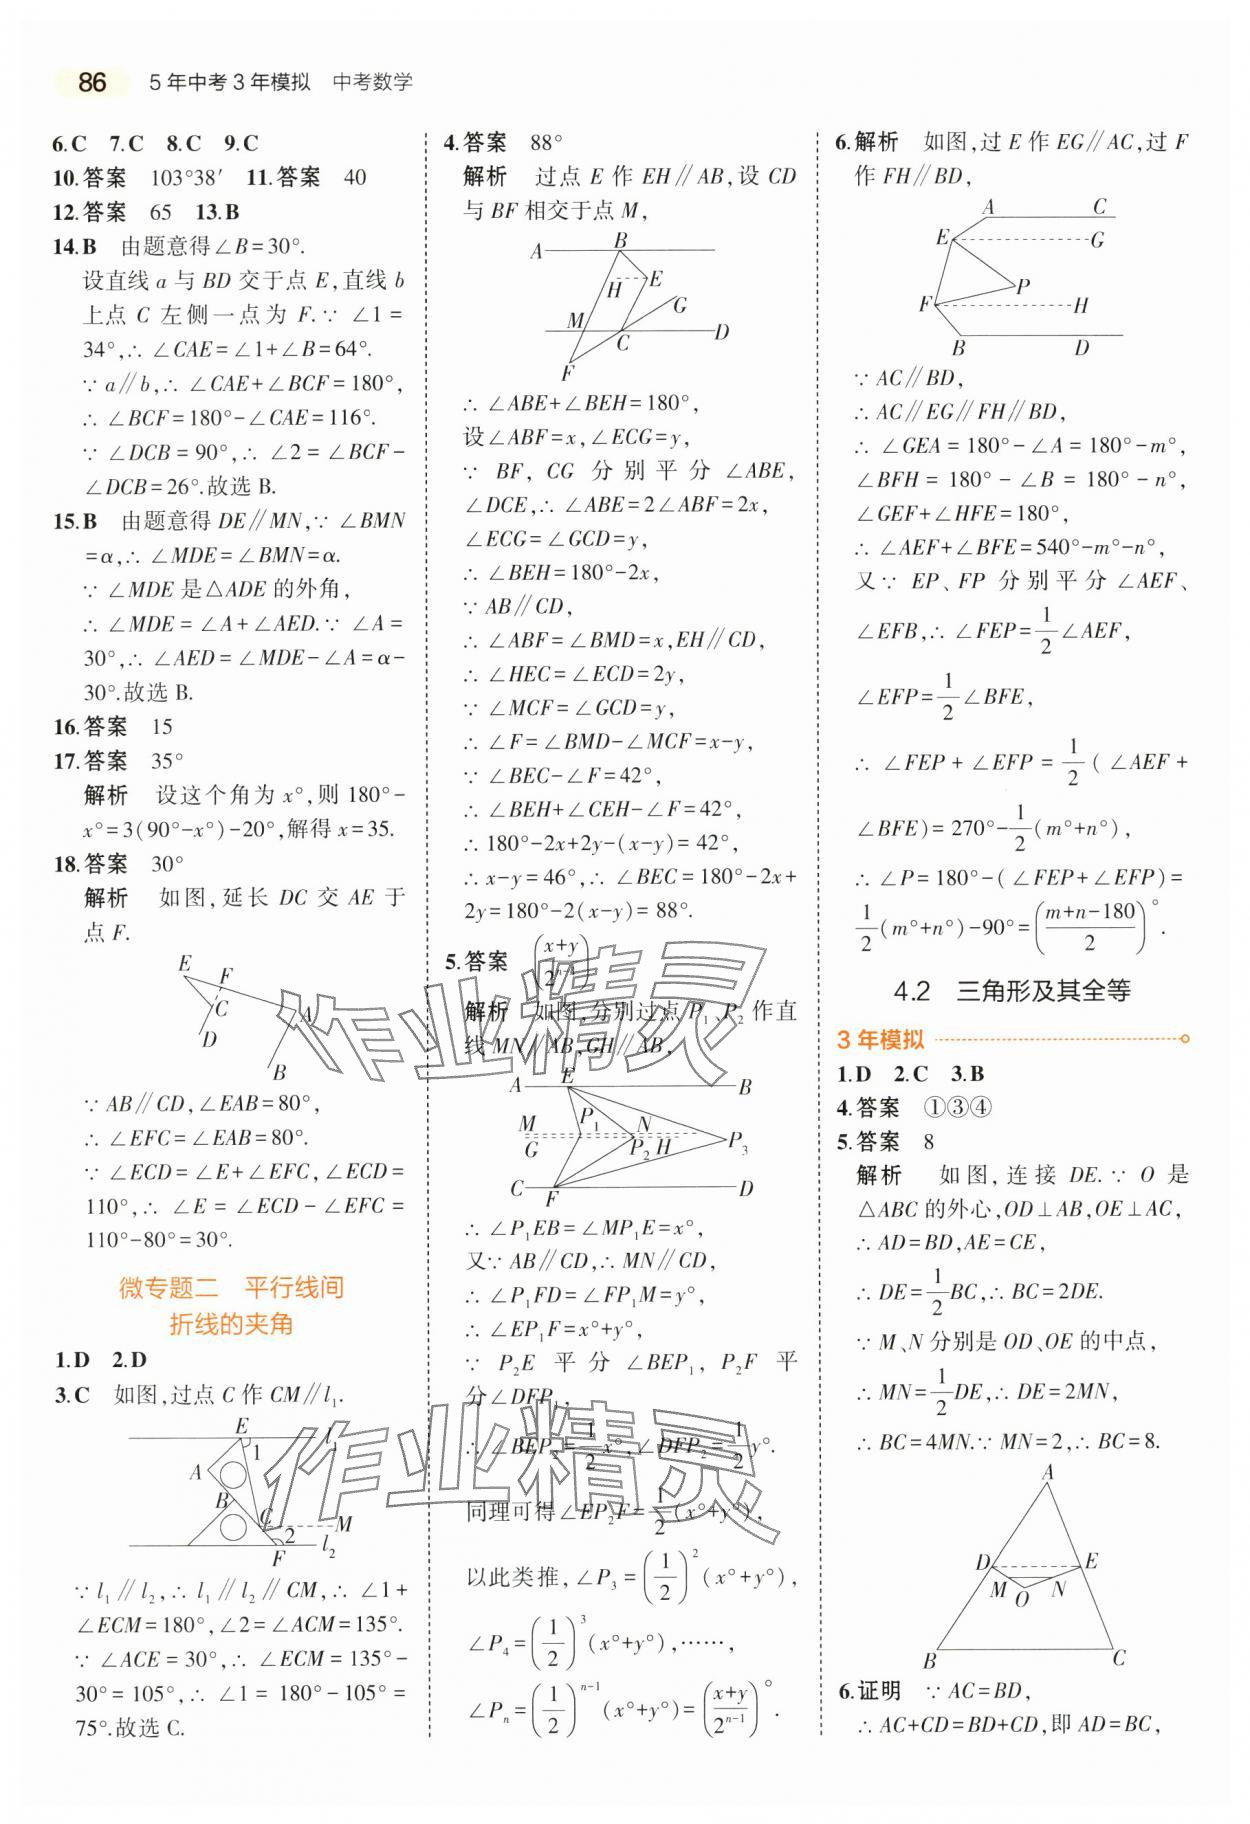 86 5年中考3年模拟 中考数学
6.C 7.C 8.C 9.C
10.答案 103°38′ 11.答案 40
12.答案 65 13.B
14.B 由题意得∠B=30°.
设直线a与BD交于点E,直线b
上点C左侧一点为F.∵∠1=
34°,∴∠CAE=∠1+∠B=64°.
∵a∥b,∴∠CAE+∠BCF=180°,
∴∠BCF=180°-∠CAE=116°.
∵∠DCB=90°,∴∠2=∠BCF-
∠DCB=26°.故选B.
15.B 由题意得DE∥MN,∵∠BMN
=α,∴∠MDE=∠BMN=α.
∵∠MDE是△ADE的外角,
∴∠MDE=∠A+∠AED.∵∠A=
30°,∴∠AED=∠MDE-∠A=α-
30°.故选B.
16.答案 15
17.答案 35°
解析 设这个角为x°,则180°-
x°=3(90°-x°)-20°,解得x=35.
18.答案 30°
解析 如图,延长DC交AE于
点F.
E F C A D B
∵AB∥CD,∠EAB=80°,
∴∠EFC=∠EAB=80°.
∵∠ECD=∠E+∠EFC,∠ECD=
110°,∴∠E=∠ECD-∠EFC=
110°-80°=30°.
微专题二 平行线间
折线的夹角
1.D 2.D
3.C 如图,过点C作CM∥l₁.
E 1 l₁ A B C M 2 F l₂
∵l₁∥l₂,∴l₁∥l₂∥CM,∴∠1+
∠ECM=180°,∠2=∠ACM=135°.
∵∠ACE=30°,∴∠ECM=135°-
30°=105°,∴∠1=180°-105°=
75°.故选C.
4.答案 88°
解析 过点E作EH∥AB,设CD
与BF相交于点M,
A B H E G M C D F
∴∠ABE+∠BEH=180°,
设∠ABF=x,∠ECG=y,
∵BF,CG分别平分∠ABE,
∠DCE,∴∠ABE=2∠ABF=2x,
∠ECG=∠GCD=y,
∴∠BEH=180°-2x,
∵AB∥CD,
∴∠ABF=∠BMD=x,EH∥CD,
∴∠HEC=∠ECD=2y,
∵∠MCF=∠GCD=y,
∴∠F=∠BMD-∠MCF=x-y,
∵∠BEC-∠F=42°,
∴∠BEH+∠CEH-∠F=42°,
∴180°-2x+2y-(x-y)=42°,
∴x-y=46°,∴∠BEC=180°-2x+
2y=180°-2(x-y)=88°.
5.答案 ((x+y)/2ⁿ⁻¹)°
解析 如图,分别过点P₁、P₂作直
线MN∥AB,GH∥AB,
A E B M P₁ N G P₂ H P₃ C F D
∴∠P₁EB=∠MP₁E=x°,
又∵AB∥CD,∴MN∥CD,
∴∠P₁FD=∠FP₁M=y°,
∴∠EP₁F=x°+y°,
∵P₂E平分∠BEP₁,P₂F平
分∠DFP₁,
∴∠BEP₂=1/2x°,∠DFP₂=1/2y°.
同理可得∠EP₂F=1/2(x°+y°),
以此类推,∠P₃=(1/2)²(x°+y°),
∠P₄=(1/2)³(x°+y°),……,
∠Pₙ=(1/2)ⁿ⁻¹(x°+y°)=((x+y)/2ⁿ⁻¹)°.
6.解析 如图,过E作EG∥AC,过F
作FH∥BD,
A C E G P F H B D
∵AC∥BD,
∴AC∥EG∥FH∥BD,
∴∠GEA=180°-∠A=180°-m°,
∠BFH=180°-∠B=180°-n°,
∠GEF+∠HFE=180°,
∴∠AEF+∠BFE=540°-m°-n°,
又∵EP、FP分别平分∠AEF、
∠EFB,∴∠FEP=1/2∠AEF,
∠EFP=1/2∠BFE,
∴∠FEP+∠EFP=1/2(∠AEF+
∠BFE)=270°-1/2(m°+n°),
∴∠P=180°-(∠FEP+∠EFP)=
1/2(m°+n°)-90°=((m+n-180)/2)°.
4.2 三角形及其全等
3年模拟
1.D 2.C 3.B
4.答案 ①③④
5.答案 8
解析 如图,连接DE.∵O是
△ABC的外心,OD⊥AB,OE⊥AC,
∴AD=BD,AE=CE,
∴DE=1/2BC,∴BC=2DE.
∵M、N分别是OD、OE的中点,
∴MN=1/2DE,∴DE=2MN,
∴BC=4MN.∵MN=2,∴BC=8.
A D E M N O B C
6.证明 ∵AC=BD,
∴AC+CD=BD+CD,即AD=BC,
作业精灵
作业精灵